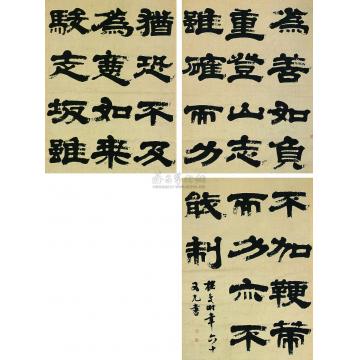 為善如負
重登山志
雖確而力
猶恐不及
為惡如乘
駿走坂雖
不加鞭策
而力亦不
能制
年六十
書